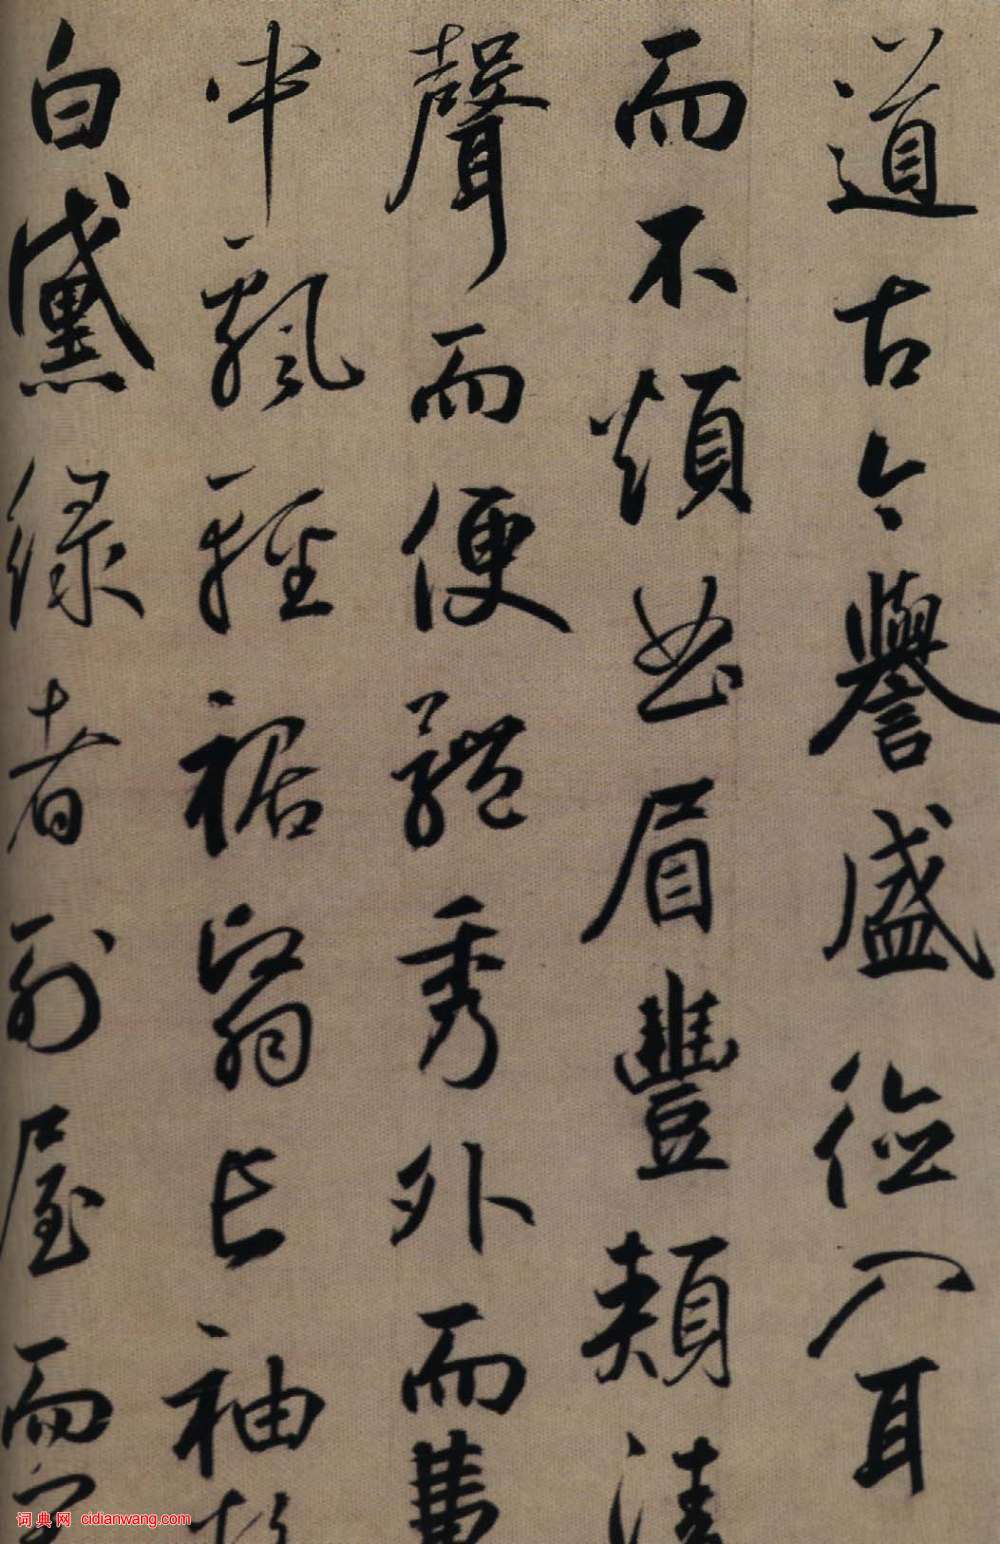 道古今譽盛德入耳
而不煩曲眉豐頰清
聲而便體秀外而惠
中飄輕裾翳長袖
白黛綠者列屋而
词典网 cidianwang.com